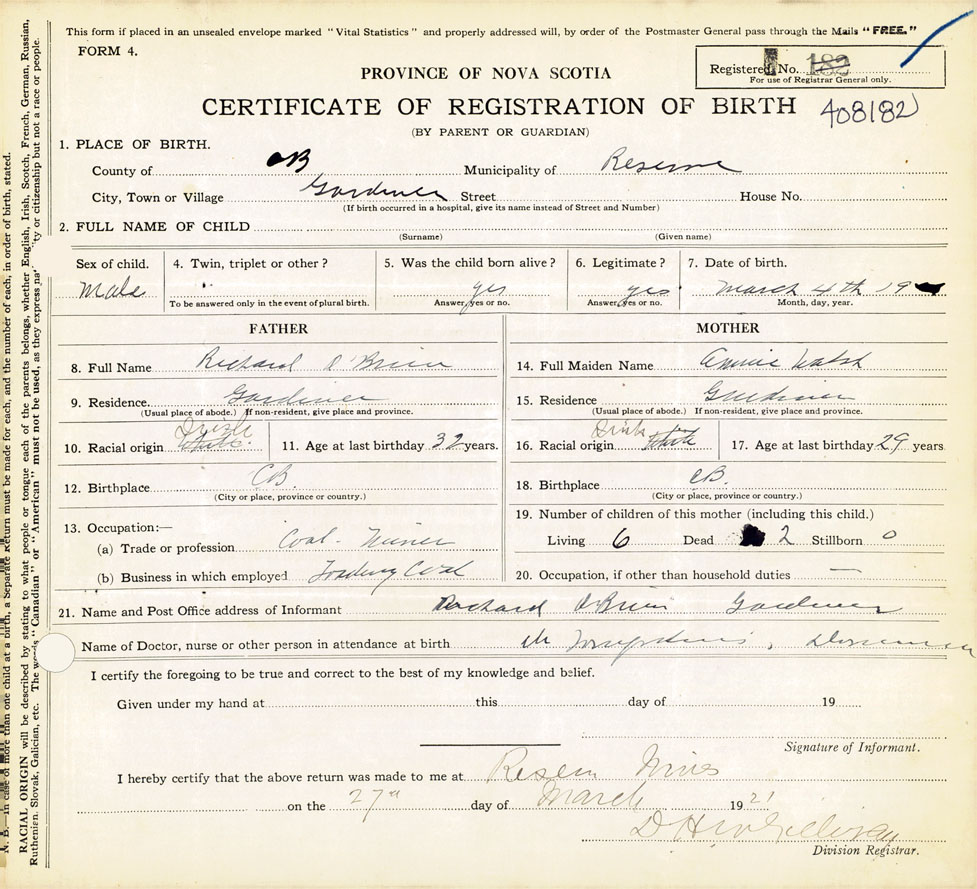 This form if placed in an unsealed envelope marked "Vital Statistics" and properly addressed will, by order of the Postmaster General pass through the Mails "FREE."
FORM 4.
Registered No. 182
For use of Registrar General only.
PROVINCE OF NOVA SCOTIA
CERTIFICATE OF REGISTRATION OF BIRTH 408182
(BY PARENT OR GUARDIAN)
1. PLACE OF BIRTH.
County of CB Municipality of Reserve
City, Town or Village Gardiner Street House No.
(If birth occurred in a hospital, give its name instead of Street and Number)
2. FULL NAME OF CHILD
(Surname) (Given name)
Sex of child. 4. Twin, triplet or other? 5. Was the child born alive? 6. Legitimate? 7. Date of birth.
Male yes yes March 4th 19
To be answered only in the event of plural birth. Answer, yes or no. Answer, yes or no. Month, day, year.
FATHER MOTHER
8. Full Name Richard O'Brien 14. Full Maiden Name Annie Walsh
9. Residence Gardiner 15. Residence Gardiner
(Usual place of abode.) If non-resident, give place and province. (Usual place of abode.) If non-resident, give place and province.
Irish Irish
10. Racial origin White 11. Age at last birthday 32 years. 16. Racial origin White 17. Age at last birthday 29 years
12. Birthplace CB 18. Birthplace CB.
(City or place, province or country.) (City or place, province or country.)
13. Occupation:— 19. Number of children of this mother (including this child.)
(a) Trade or profession Coal Miner Living 6 Dead 2 Stillborn 0
(b) Business in which employed Coal 20. Occupation, if other than household duties —
21. Name and Post Office address of Informant Richard O'Brien Gardiner
Name of Doctor, nurse or other person in attendance at birth
I certify the foregoing to be true and correct to the best of my knowledge and belief.
Given under my hand at this day of 19
Signature of Informant.
I hereby certify that the above return was made to me at Reserve Mines
on the 27th day of March 1921
Division Registrar.
N. B.—In case of more than one child at a birth, a separate Return must be made for each, and the number of each, in order of birth, stated.
RACIAL ORIGIN will be described by stating to what people or tongue each of the parents belongs, whether English, Irish, Scotch, French, German, Russian,
Ruthenien, Slovak, Galician, etc. The words "Canadian" or "American" must not be used, as they express citizenship but not a race or people.